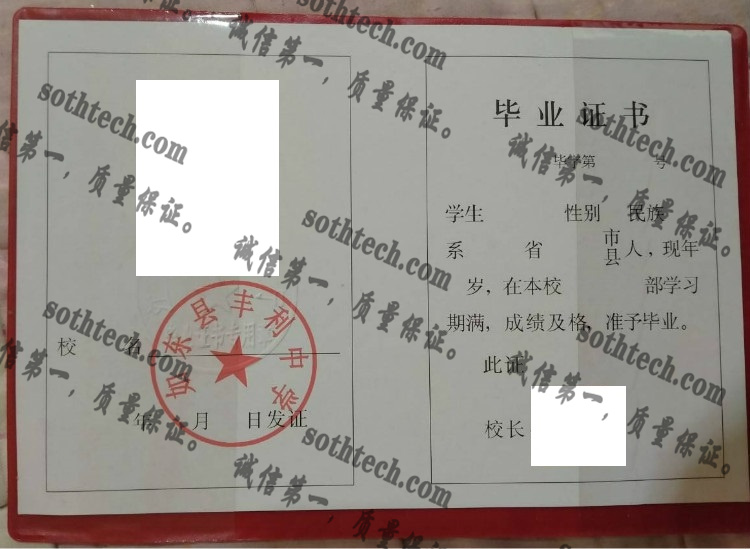 毕业证书
毕字第 号
学生 性别 民族
系 省 市县 人，现年
岁，在本校 部学习
期满，成绩及格，准予毕业。
此证
校长
如东县丰利中学
校 名
年 月 日发证
sothtech.com
诚信第一，质量保证。
sothtech.com
诚信第一，质量保证。
sothtech.com
诚信第一，质量保证。
sothtech.com
诚信第一，质量保证。
sothtech.com
诚信第一，质量保证。
sothtech.com
诚信第一，质量保证。
sothtech.com
诚信第一，质量保证。
sothtech.com
诚信第一，质量保证。